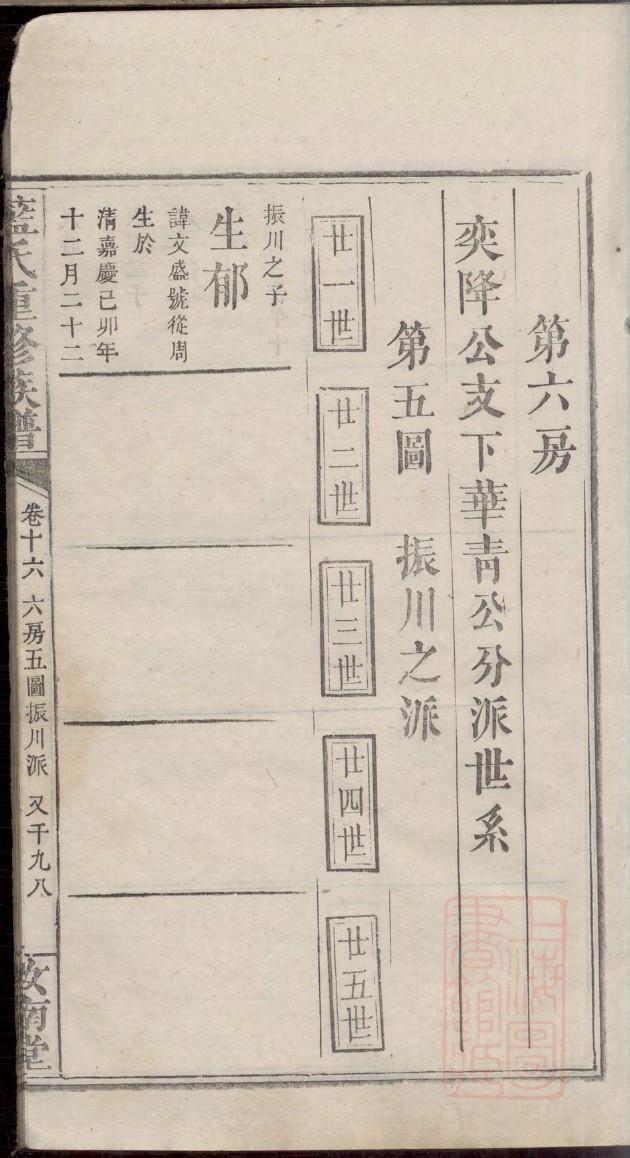 第六房
奕降公支下華青公分派世系
第五圖 振川之派
廿一世
廿二世
廿三世
廿四世
廿五世
振川之子
生郁
諱文盛號從周
生於
清嘉慶己卯年
十二月二十二
藍氏重修族譜
卷十六 六房五圖振川派 又千九八
汝南堂
上海圖書館藏